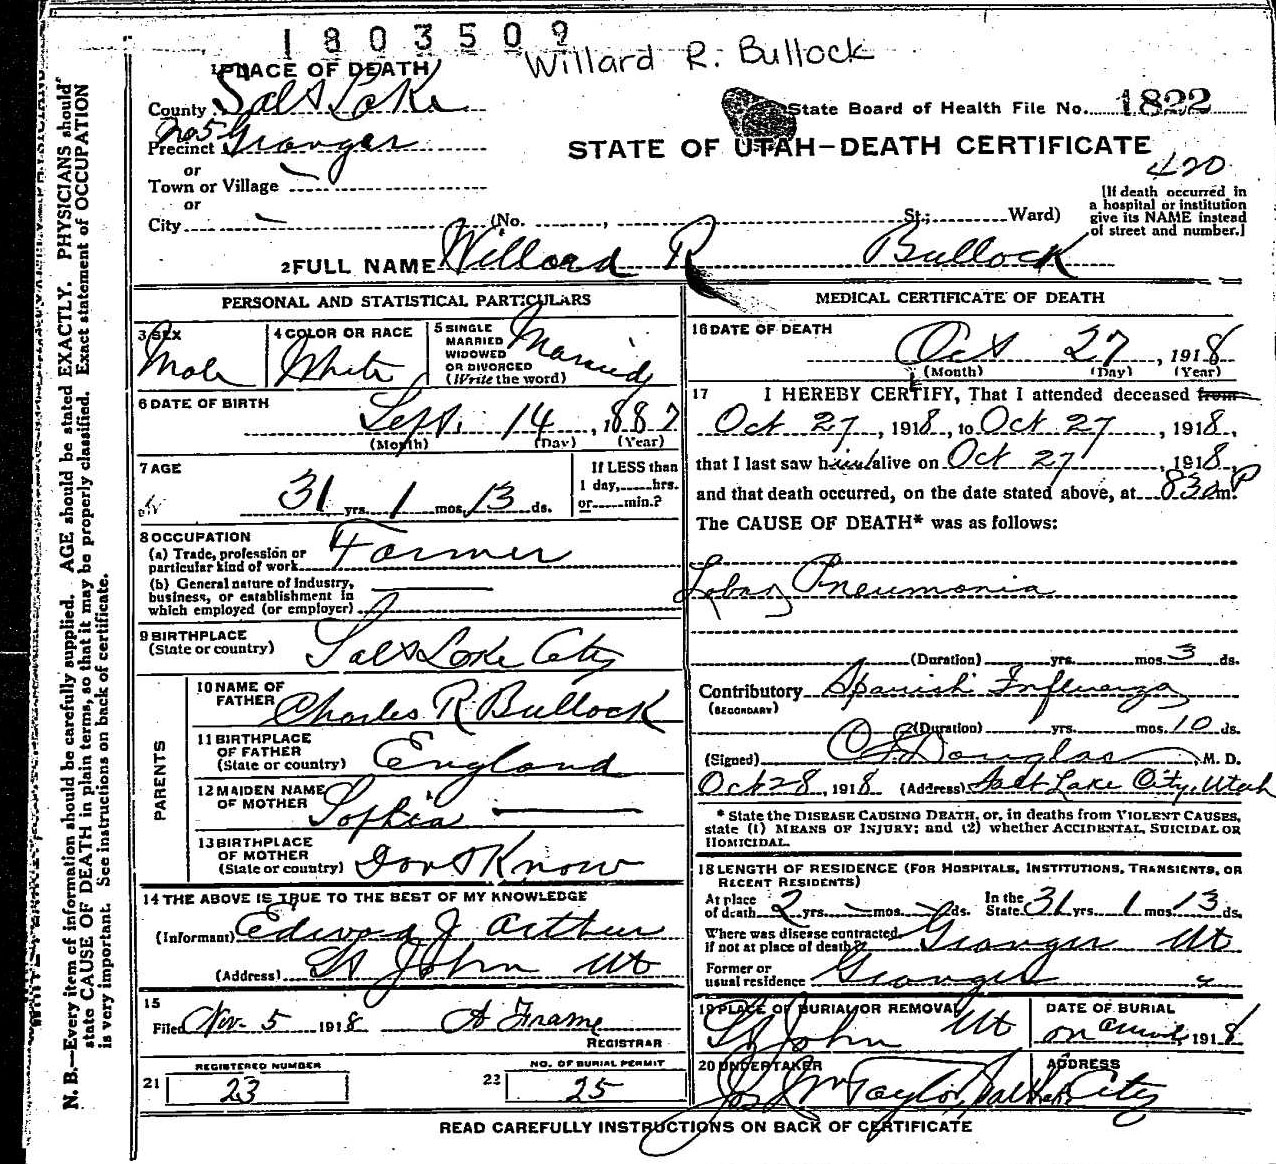 1803509
Willard R. Bullock
1 PLACE OF DEATH
County Salt Lake
State Board of Health File No. 1822
No 5
Precinct Granger
STATE OF UTAH—DEATH CERTIFICATE
or
420
Town or Village
or
City (No. , St.; Ward)
[If death occurred in
a hospital or institution
give its NAME instead
of street and number.]
2 FULL NAME Willard R Bullock
PERSONAL AND STATISTICAL PARTICULARS
3 SEX Male
4 COLOR OR RACE White
5 SINGLE
MARRIED
WIDOWED
OR DIVORCED
(Write the word) Married
6 DATE OF BIRTH
Sept. 14, 1887
(Month) (Day) (Year)
7 AGE
31 yrs. 1 mos. 13 ds.
If LESS than
1 day, hrs.
or min.?
8 OCCUPATION
(a) Trade, profession or
particular kind of work Farmer
(b) General nature of Industry,
business, or establishment in
which employed (or employer)
9 BIRTHPLACE
(State or country) Salt Lake City
PARENTS
10 NAME OF
FATHER Charles R Bullock
11 BIRTHPLACE
OF FATHER
(State or country) England
12 MAIDEN NAME
OF MOTHER Sophia
13 BIRTHPLACE
OF MOTHER
(State or country) Dont Know
14 THE ABOVE IS TRUE TO THE BEST OF MY KNOWLEDGE
(Informant) Edward J Arthur
(Address) St John Ut
15
Filed Nov. 5 1918 A Frame
REGISTRAR
REGISTERED NUMBER
21 23
NO. OF BURIAL PERMIT
22 25
MEDICAL CERTIFICATE OF DEATH
16 DATE OF DEATH
Oct 27, 1918
(Month) (Day) (Year)
17 I HEREBY CERTIFY, That I attended deceased from
Oct 27, 1918, to Oct 27, 1918,
that I last saw him alive on Oct 27, 1918,
and that death occurred, on the date stated above, at 830 P m.
The CAUSE OF DEATH* was as follows:
Lobar Pneumonia
(Duration) yrs. mos. 3 ds.
Contributory Spanish Influenza
(SECONDARY)
(Duration) yrs. mos. 10 ds.
(Signed) Douglas M. D.
Oct 28, 1918 (Address) Salt Lake City, Utah
* State the DISEASE CAUSING DEATH, or, in deaths from VIOLENT CAUSES,
state (1) MEANS OF INJURY; and (2) whether ACCIDENTAL, SUICIDAL OR
HOMICIDAL.
18 LENGTH OF RESIDENCE (FOR HOSPITALS, INSTITUTIONS, TRANSIENTS, OR
RECENT RESIDENTS)
At place
of death 2 yrs. mos. ds.
In the
State 31 yrs. 1 mos. 13 ds.
Where was disease contracted,
if not at place of death? Granger Ut
Former or
usual residence Granger
19 PLACE OF BURIAL OR REMOVAL
St John Ut
DATE OF BURIAL
on 1918
20 UNDERTAKER
Jos Wm Taylor
ADDRESS
Salt Lake City
READ CAREFULLY INSTRUCTIONS ON BACK OF CERTIFICATE
N. B.—Every item of information should be carefully supplied. AGE should be stated EXACTLY. PHYSICIANS should
state CAUSE OF DEATH in plain terms, so that it may be properly classified. Exact statement of OCCUPATION
is very important. See instructions on back of certificate.